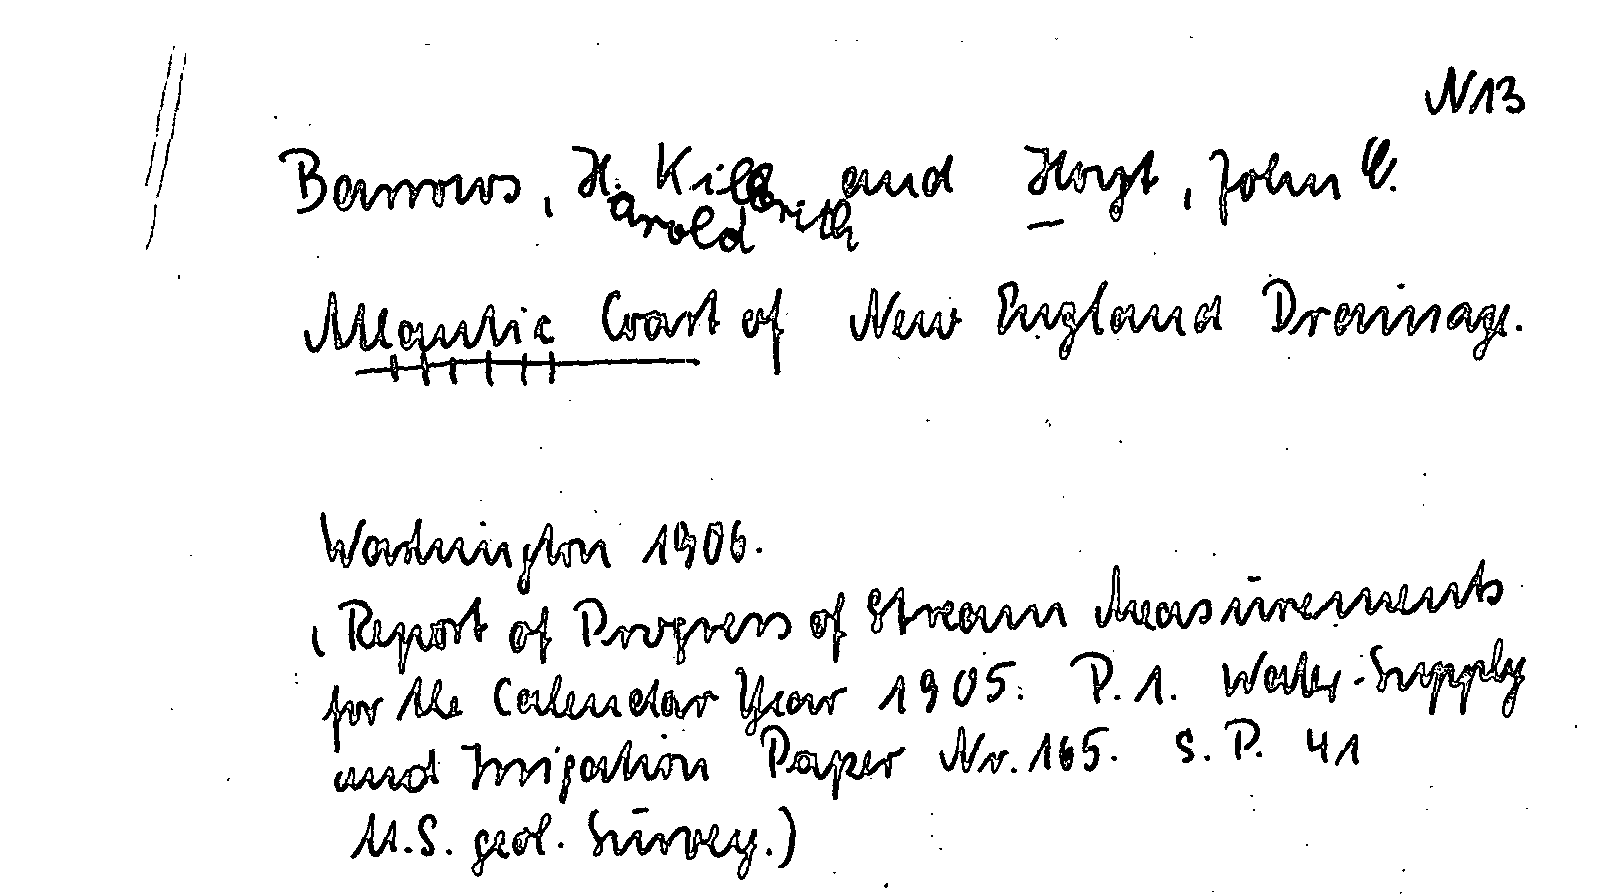 N13
Barrows, H. Killbrith and Hoyt, John C.
arold
Atlantic Coast of New England Drainage.
Washington 1906.
(Report of Progress of Stream Measurements
for the Calendar Year 1905. P. 1. Water-Supply
and Irrigation Paper Nr. 165. S. P. 41
U.S. geol. Survey.)